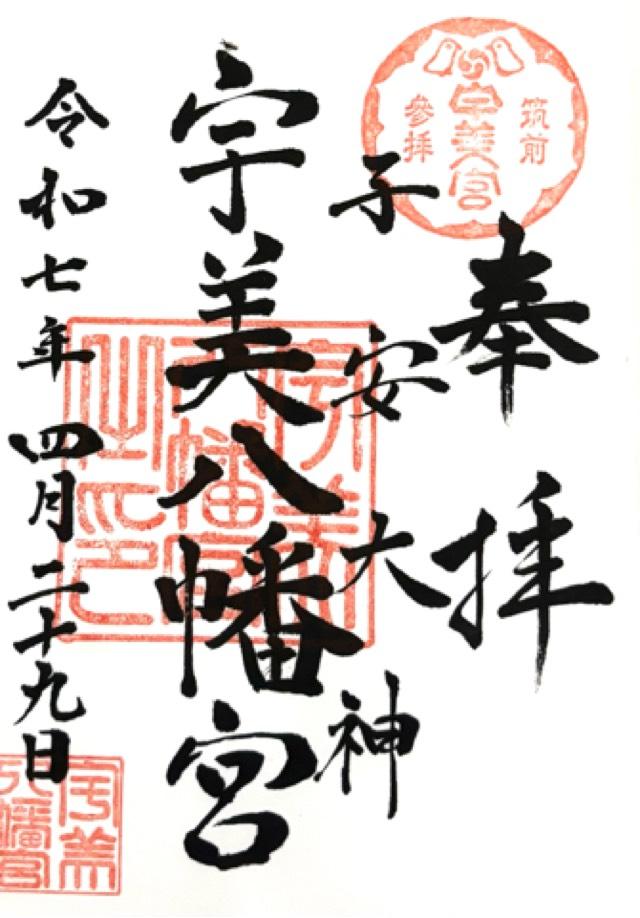 筑前
宇美宮
參拝
奉拝
子安大神
宇美八幡宮
令和七年四月二十九日
宇美
八幡宮
之印
宇美
八幡宮